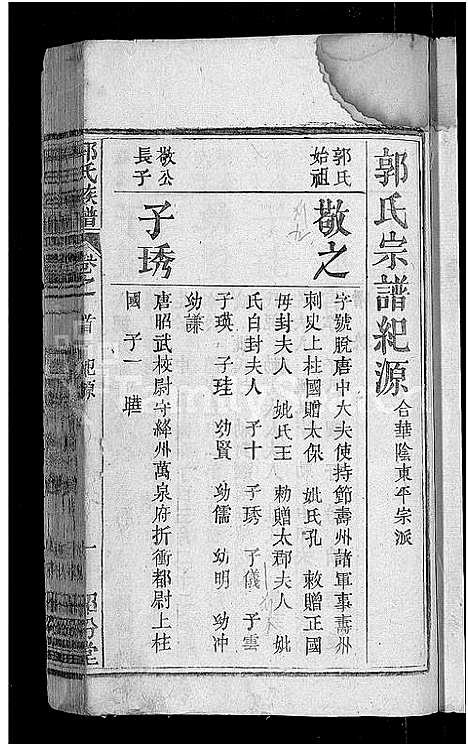 郭氏宗譜紀源 合華陰東平宗派
郭氏始祖
敬之
字號脫唐中大夫使持節壽州諸軍事壽州
刺史上柱國贈太保 妣氏孔 敕贈正國
毋封夫人 妣氏王 勅贈太郡夫人 妣
氏白封夫人 子十 子琇 子儀 子雲
子瑛 子珪 幼賢 幼儒 幼明 幼冲
幼謙
敬公長子
子琇
唐昭武校尉守絳州萬泉府折衝都尉上柱
國 子一 曄
郭氏族譜 卷之一首 紀源 一 汾堂